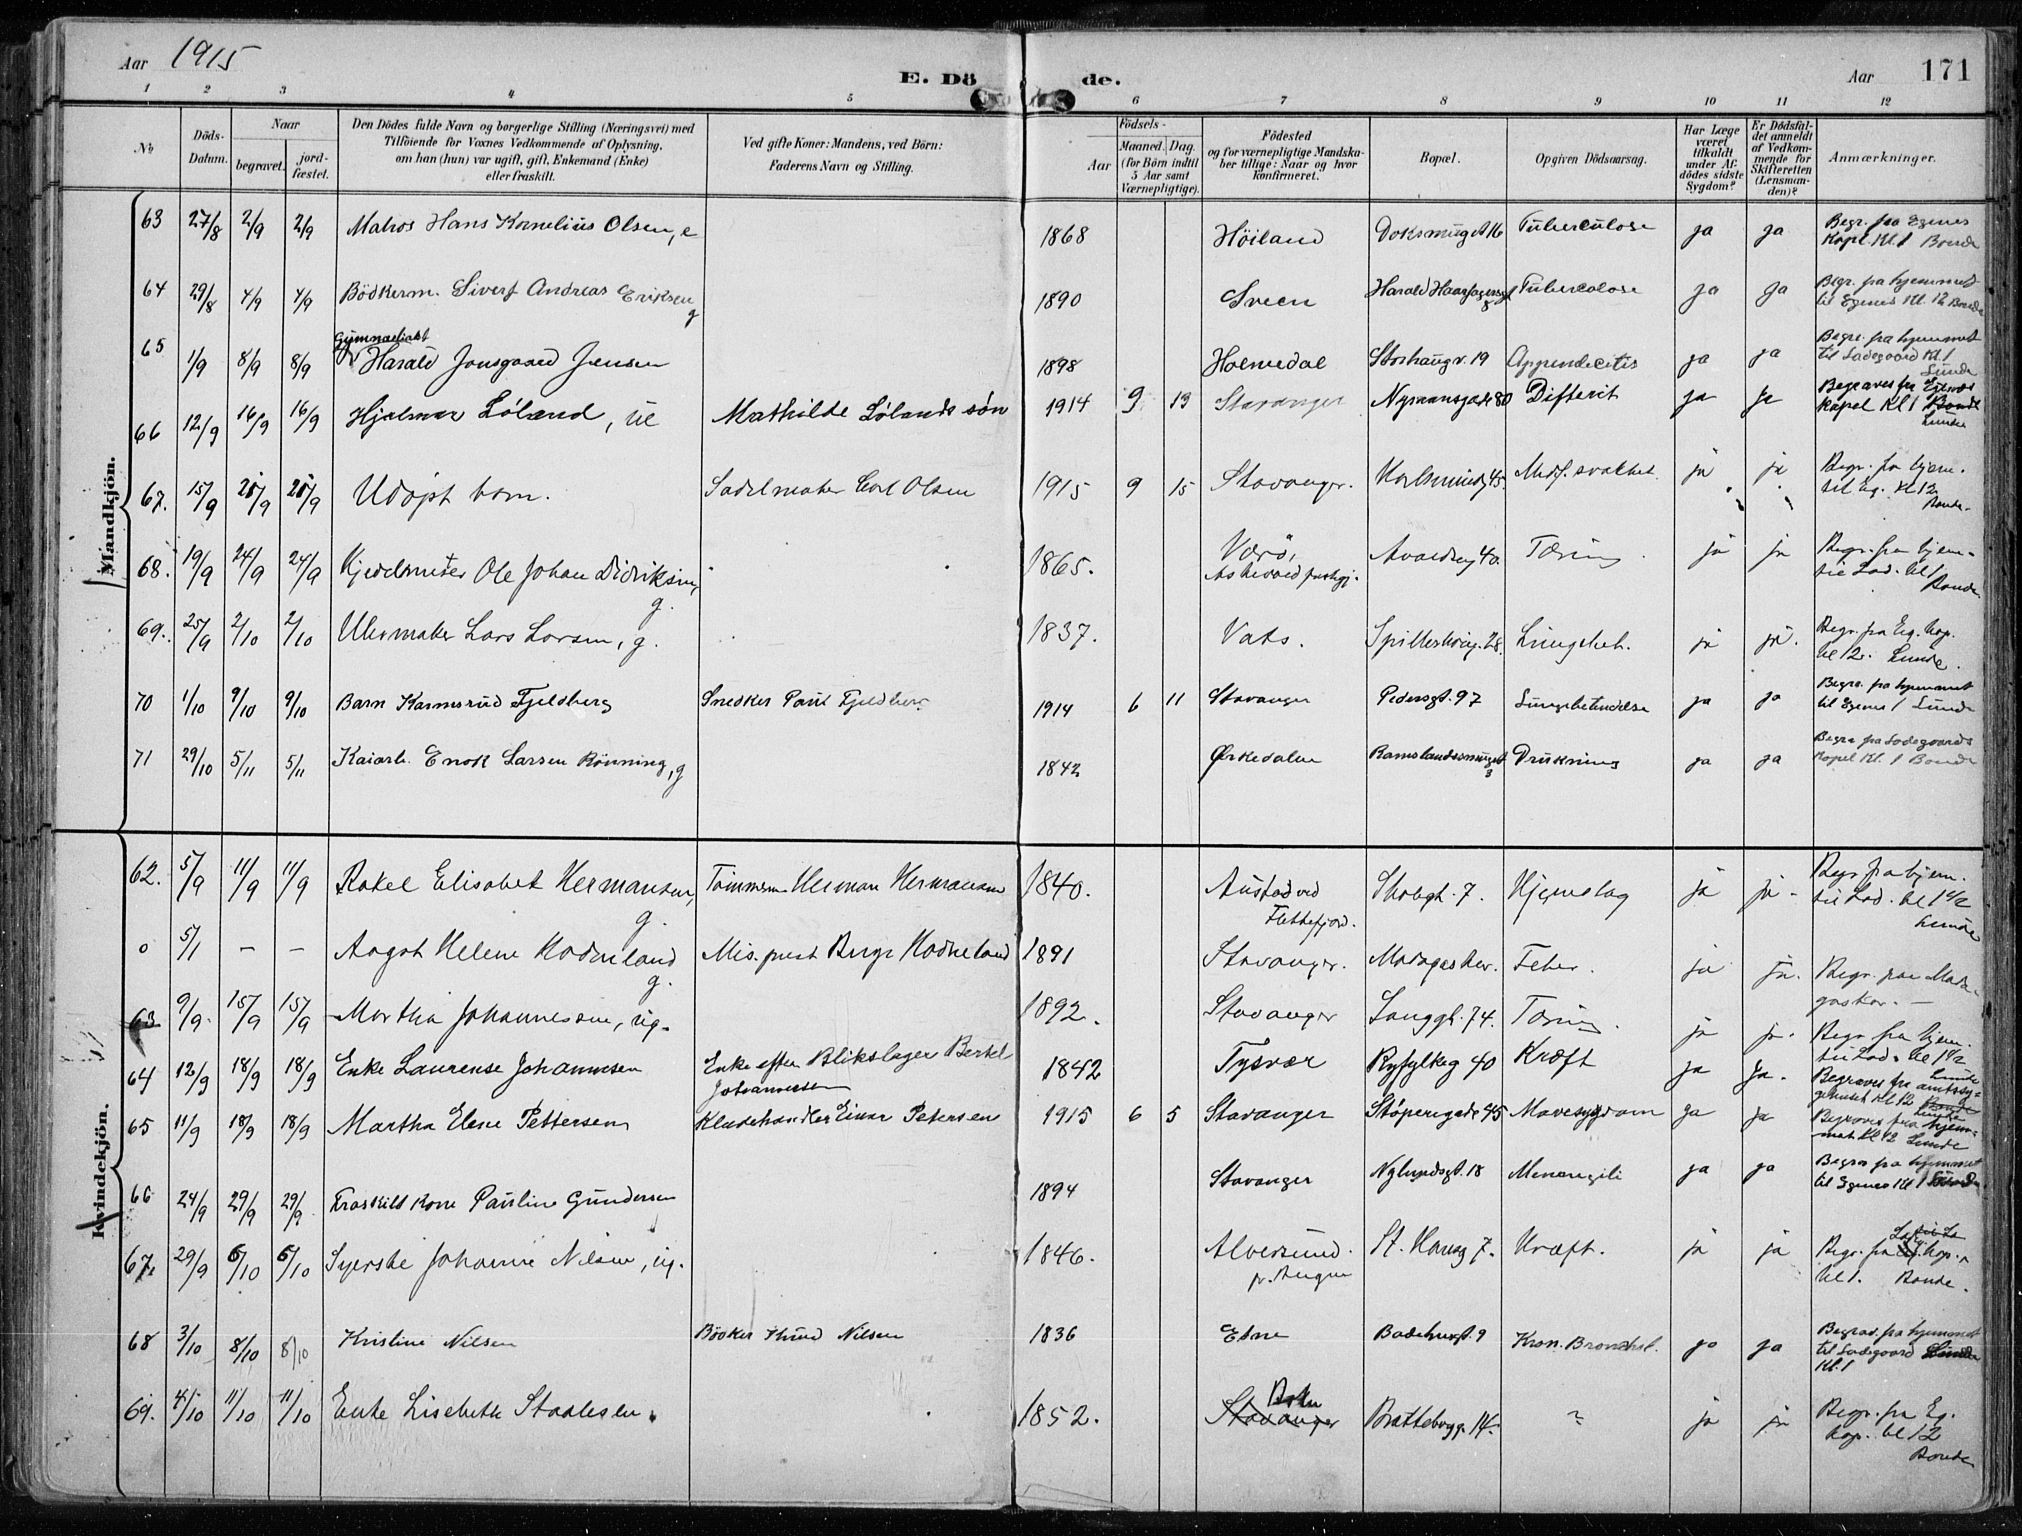 Aar 1915
E. Dö de.
Aar 171
1 2 3 4 5 6 7 8 9 10 11 12
No
Döds-Datum.
Naar
begravet.
jord-fæstet.
Den Dödes fulde Navn og borgerlige Stilling (Næringsvei) med
Tilföiende for Voxnes Vedkommende af Oplysning,
om han (hun) var ugift, gift, Enkemand (Enke)
eller fraskilt.
Ved gifte Koner: Mandens, ved Börn:
Faderens Navn og Stilling.
Födsels-
Aar
Maaned. Dag.
(for Börn indtil
5 Aar samt
Værnepligtige).
Födested
og for værnepligtige Mandska-
ber tillige: Naar og hvor
konfirmeret.
Bopæl.
Opgiven Dödsaarsag.
Har Læge
været
tilkaldt
under Af-
dödes sidste
Sygdom?
Er Dödsfal-
det anmeldt
af Vedkom-
mende for
Skifteretten
(Lensman-
den)?
Anmærkninger.
Mandkjön.
63 27/8 2/9 2/9 Matros Hans Kornelius Olsen, e 1868 Höiland Doksmuget 16 Tuberculose ja ja Begr. fra Egenes
Kapel Kl. 1 Bonde
64 29/8 4/9 4/9 Bödkerm. Sivert Andreas Eriksen g 1890 Sveen Harald Haarfagersgt 8 Tuberculose ja ja Begr. fra hjemmet
til Egenes Kl. 12 Bonde
65 1/9 8/9 8/9 Gymnasiast
Harald Jonsgaard Jensen 1898 Holmedal Storhaugv. 19 Appendecitis ja ja Begr. fra hjemmet
til Ladegaard Kl. 1
Lunde
66 12/9 16/9 16/9 Hjalmar Löland, ue Mathilde Lölands sön 1914 9 13 Stavanger Nymansgade 80 Difterit ja ja Begraves fra Egenæs
kapel Kl 1 Bonde
Lunde
67. 15/9 21/9 21/9 Udöpt barn. Sadelmaker Carl Olsen 1915 9 15 Stavanger. Karlsmindeg 45. Medf. svakhet ja ja Begr. fra hjem.
til Eg. Kl 12
Bonde.
68. 19/9 24/9 24/9 Kjedelmester Ole Johan Didriksen, g. 1865. Værö,
Askevold prestgj. Avaldsng 40. Tæring. ja ja Begr. fra hjem.
til Lad. kl 1
Bonde.
69. 25/9 2/10 2/10 Uhrmaker Lars Larsen, g. 1837. Vats. Spilderhaug. 28. Lungebet. ja ja. Begr. fra Eg. kap.
kl 12. Lunde.
70 1/10 9/10 9/10 Barn Karmsrud Fjeldberg Snedker Paul Fjeldberg 1914 6 11 Stavanger Pedersgt. 97 Lungebetendelse ja ja Begr. fra hjemmet
til Egenes 1 Lunde
71 29/10 5/11 5/11 Kaiarb. Enok Larsen Rönning, g 1842 Ørkedalen Ramslandssmuget 3 Drukning ja ja Begr. fra Ladegaards
Kapel Kl. 1 Bonde
Kvindekjön.
62. 5/9 11/9 11/9 Rakel Elisabet Hermansen, g. Tömmerm Herman Hermansen 1840. Austad ved
Flekkefjord. Skolegt. 7. Hjerneslag ja ja. Begr fra hjem.
til Lad. kl 1 1/2
Lunde
o 5/1 – – Aagot Helene Hodneland g. Mis. prest Birger Hodneland 1891 Stavanger. Madagaskar. Feber. ja ja. Begr. paa Mada-
gaskar. –
63 9/9 15/9 15/9 Martha Johannessen, ug. 1892. Stavanger Langgt. 74. Tæring. ja ja. Begr. fra hjem.
til Lad. kl 1 1/2
Lunde
64 12/9 18/9 18/9 Enke Laurense Johannesen Enke efter Blikslager Bertel
Johannessen 1842 Tysvær Ryfylkeg 40 Kræft ja ja. Begraves fra amtssy-
gehuset Kl 12 Bonde
Lunde
65 11/9 18/9 18/9 Martha Elene Pettersen Kladehandler Einar Petersen 1915 6 5 Stavanger Stöperigade 45 Mavesygdom ja ja Begraves fra hjem-
met Kl 12 Lunde
66 24/9 29/9 29/9 Fraskilt kone Pauline Gundersen 1894 Stavanger Nylundsgt. 18 Menengiti ja ja Begrav fra hjemmet
til Egenes Kl 1
67. 29/9 6/10 6/10 Syerske Johanne Nilsen, ug. 1846. Alversund.
pr. Bergen St. Hansg 7. Kræft. ja ja Begr. fra kap.
kl 1. Bonde.
68 3/10 8/10 8/10 Kristine Nilsen Bödker Knud Nilsen 1836 Etne Badehusgt. 9 Kron. Bronchit. ja ja Begrav. fra hjemmet
til Ladegaard Lunde
Kl. 1
69. 4/10 11/10 11/10 Enke Lisebeth Staalesen. 1852. Bokn
Stavanger Brattebrogt. 14. ~ ja ja Begr. fra Eg.
kap. kl 12
Bonde